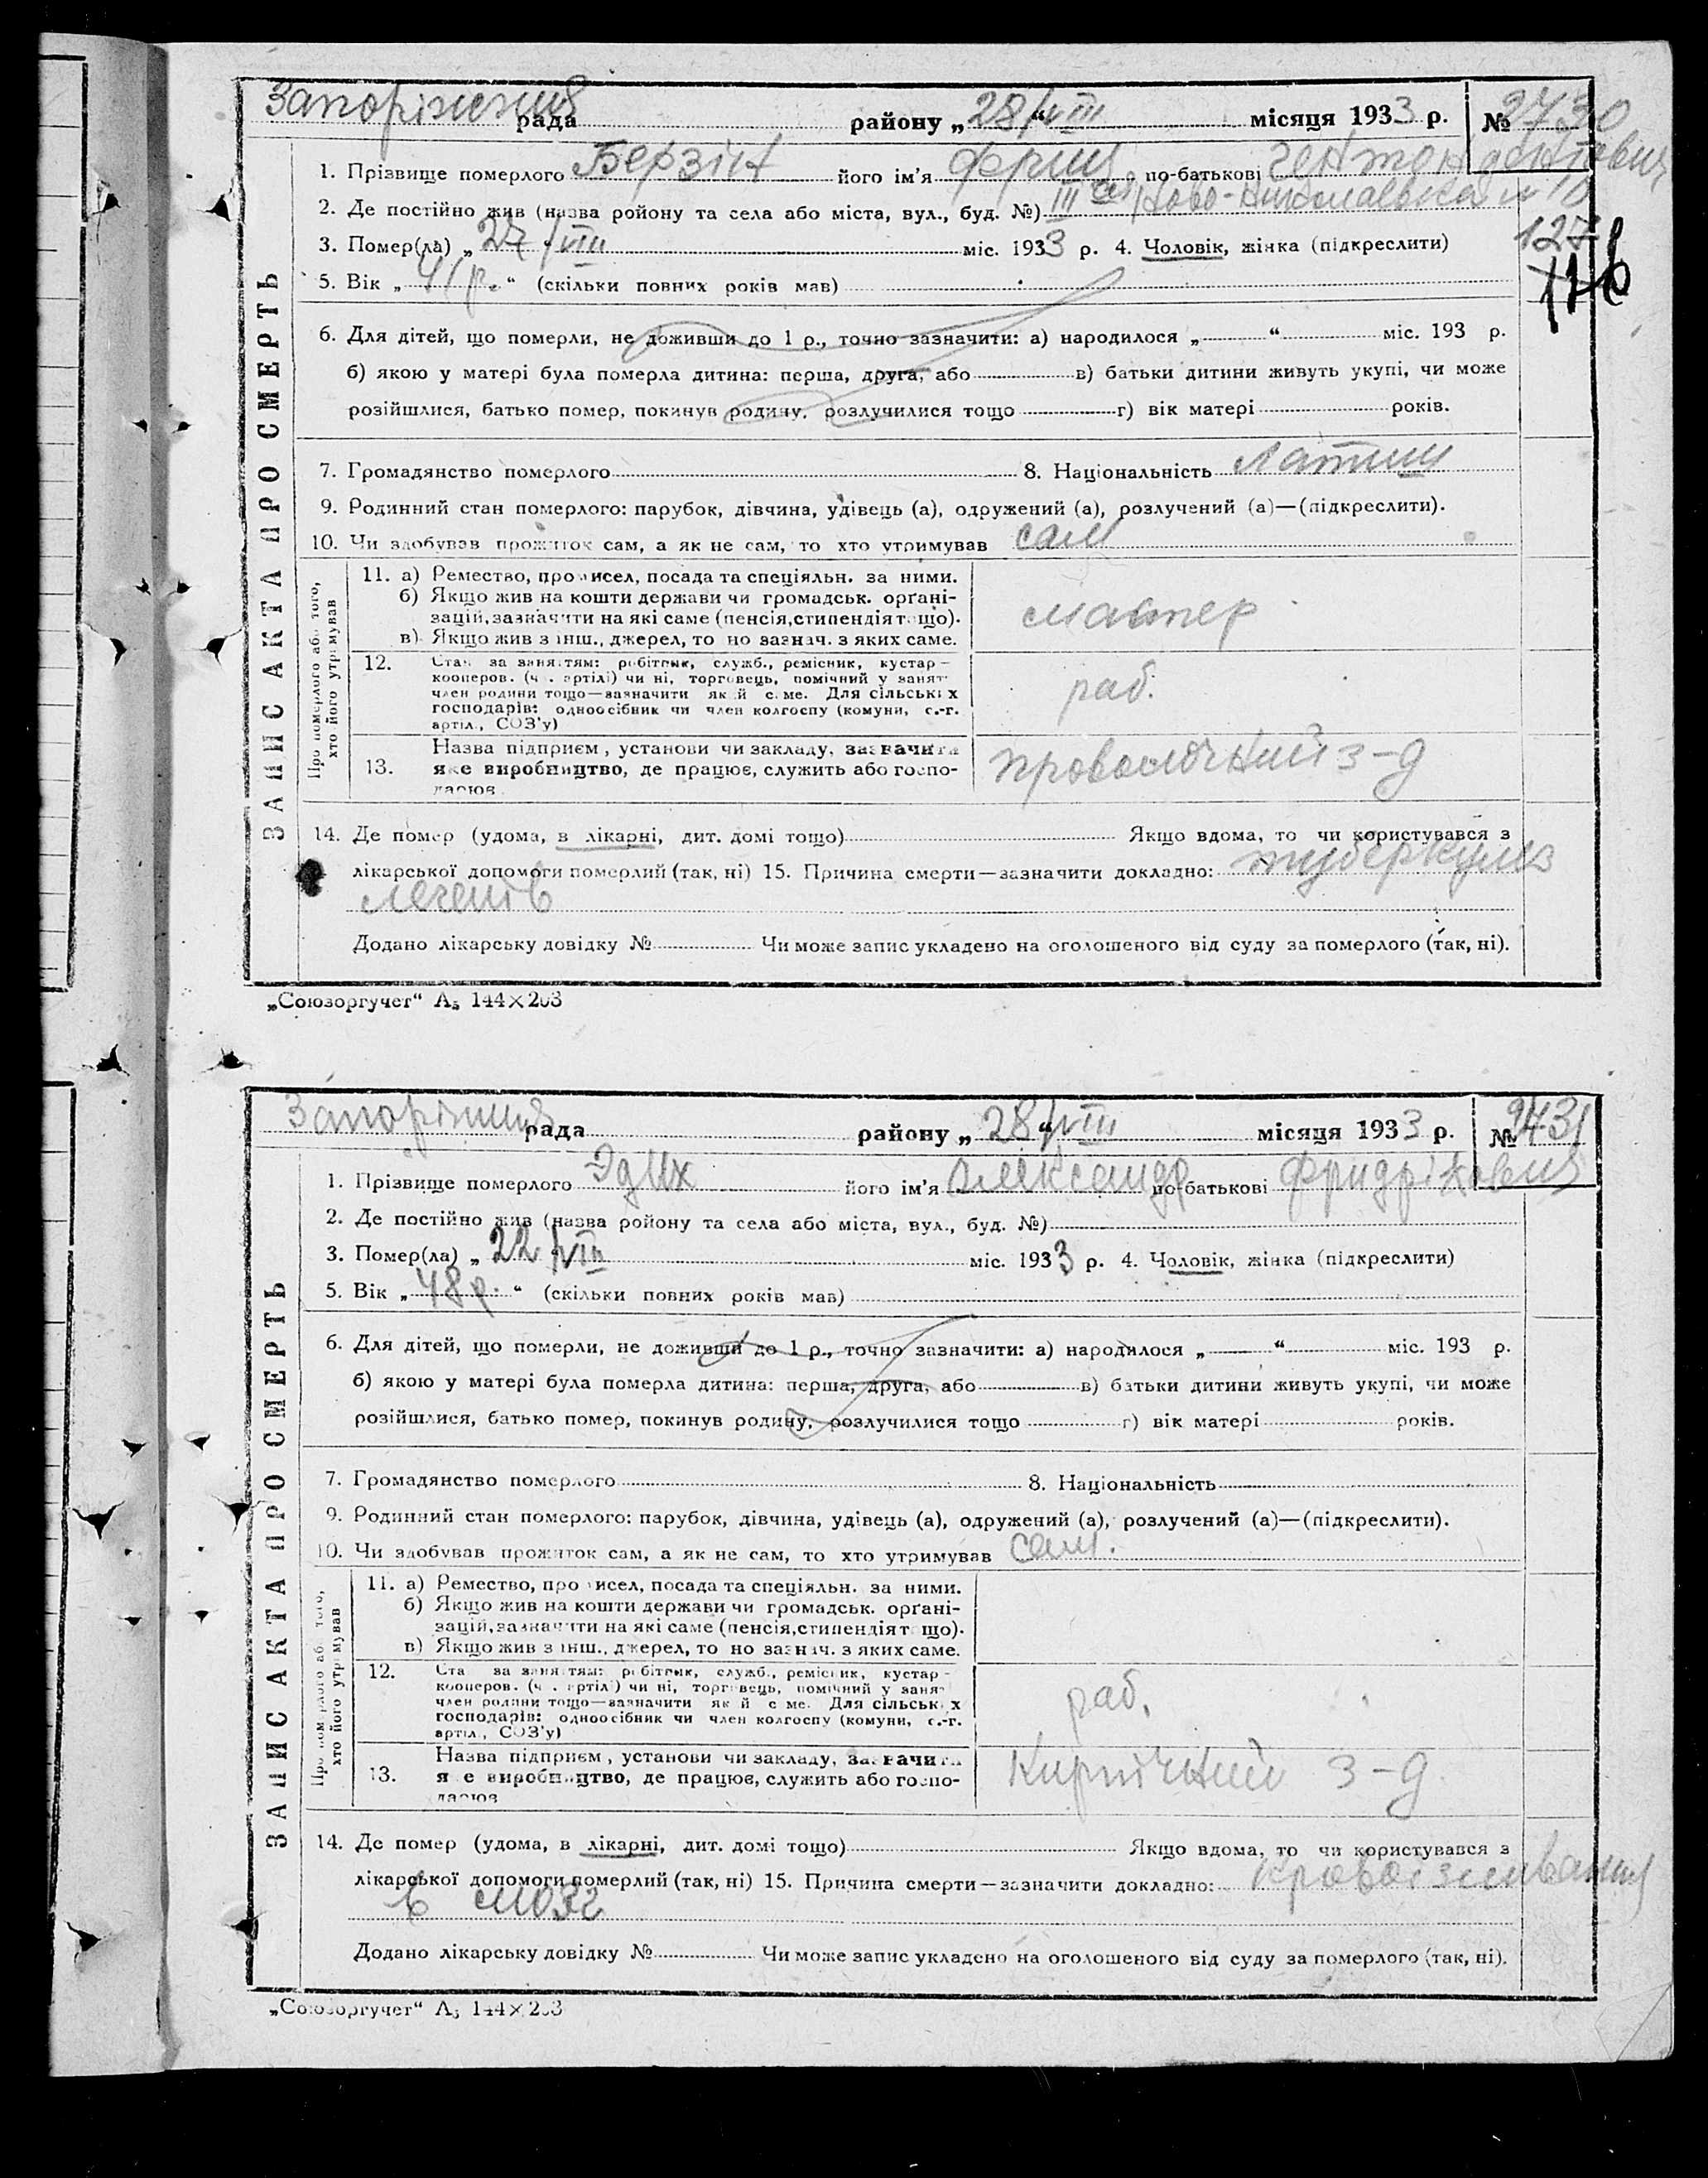 Запоріжжя рада району „28/VIII“ місяця 1933 р. № 2730
1. Прізвище померлого Берзін його ім'я по-батькові
2. Де постійно жив (назва ройону та села або міста, вул., буд. №) III Ново-Николаевская № 10
3. Помер(ла) „27“/VIII міс. 1933 р. 4. Чоловік, жінка (підкреслити)
127
116
5. Вік „41 р.“ (скільки повних років мав)
6. Для дітей, що померли, не доживши до 1 р., точно зазначити: а) народилося „ “ міс. 193 р.
б) якою у матері була померла дитина: перша, друга, або в) батьки дитини живуть укупі, чи може
розійшлися, батько помер, покинув родину, розлучилися тощо г) вік матері років.
7. Громадянство померлого 8. Національність Латиш
9. Родинний стан померлого: парубок, дівчина, удівець (а), одружений (а), розлучений (а)—(підкреслити).
10. Чи здобував прожиток сам, а як не сам, то хто утримував сам
ЗАПИС АКТА ПРО СМЕРТЬ
Про померлого або того,
хто його утримував
11. а) Ремество, промисел, посада та спеціяльн. за ними.
б) Якщо жив на кошти держави чи громадськ. орґані-
зацій, зазначити на які саме (пенсія, стипендія тощо).
в) Якщо жив з інш., джерел, то но зазнач. з яких саме.
мастер
12. Стан за заняттям: робітник, служб., ремісник, кустар—
кооперов. (ч. артілі) чи ні, торговець, помічний у занят
член родини тощо—зазначити який саме. Для сільських
господарів: одноосібник чи член колгоспу (комуни, с.-г.
артіл., СОЗ'у)
раб.
13. Назва підприєм, установи чи закладу, зазначити
яке виробництво, де працює, служить або госпо-
дарює
проволочний з-д
14. Де помер (удома, в лікарні, дит. домі тощо) Якщо вдома, то чи користувався з
лікарської допомоги померлий (так, ні) 15. Причина смерти—зазначити докладно: туберкулез
легенів
Додано лікарську довідку № Чи може запис укладено на оголошеного від суду за померлого (так, ні).
„Союзоргучет“ А5 144×203
Запоріжжя рада району „28“/VIII місяця 1933 р. №
1. Прізвище померлого його ім'я Александр по-батькові Фридріхович
2. Де постійно жив (назва ройону та села або міста, вул., буд. №)
3. Помер(ла) „22“/VIII міс. 1933 р. 4. Чоловік, жінка (підкреслити)
5. Вік „48 р.“ (скільки повних років мав)
6. Для дітей, що померли, не доживши до 1 р., точно зазначити: а) народилося „ “ міс. 193 р.
б) якою у матері була померла дитина: перша, друга, або в) батьки дитини живуть укупі, чи може
розійшлися, батько помер, покинув родину, розлучилися тощо г) вік матері років.
7. Громадянство померлого 8. Національність
9. Родинний стан померлого: парубок, дівчина, удівець (а), одружений (а), розлучений (а)—(підкреслити).
10. Чи здобував прожиток сам, а як не сам, то хто утримував сам.
ЗАПИС АКТА ПРО СМЕРТЬ
Про померлого або того,
хто його утримував
11. а) Ремество, промисел, посада та спеціяльн. за ними.
б) Якщо жив на кошти держави чи громадськ. орґані-
зацій, зазначити на які саме (пенсія, стипендія тощо).
в) Якщо жив з інш., джерел, то но зазнач. з яких саме.
12. Стан за заняттям: робітник, служб., ремісник, кустар-
кооперов. (ч. артілі) чи ні, торговець, помічний у занят
член родини тощо—зазначити який саме. Для сільських
господарів: одноосібник чи член колгоспу (комуни, с.-г.
артіл., СОЗ'у)
раб.
13. Назва підприєм, установи чи закладу, зазначити
яке виробництво, де працює, служить або госпо-
дарює
Кирпічний з-д
14. Де помер (удома, в лікарні, дит. домі тощо) Якщо вдома, то чи користувався з
лікарської допомоги померлий (так, ні) 15. Причина смерти—зазначити докладно:
в мозг
Додано лікарську довідку № Чи може запис укладено на оголошеного від суду за померлого (так, ні).
„Союзоргучет“ А5 144×203